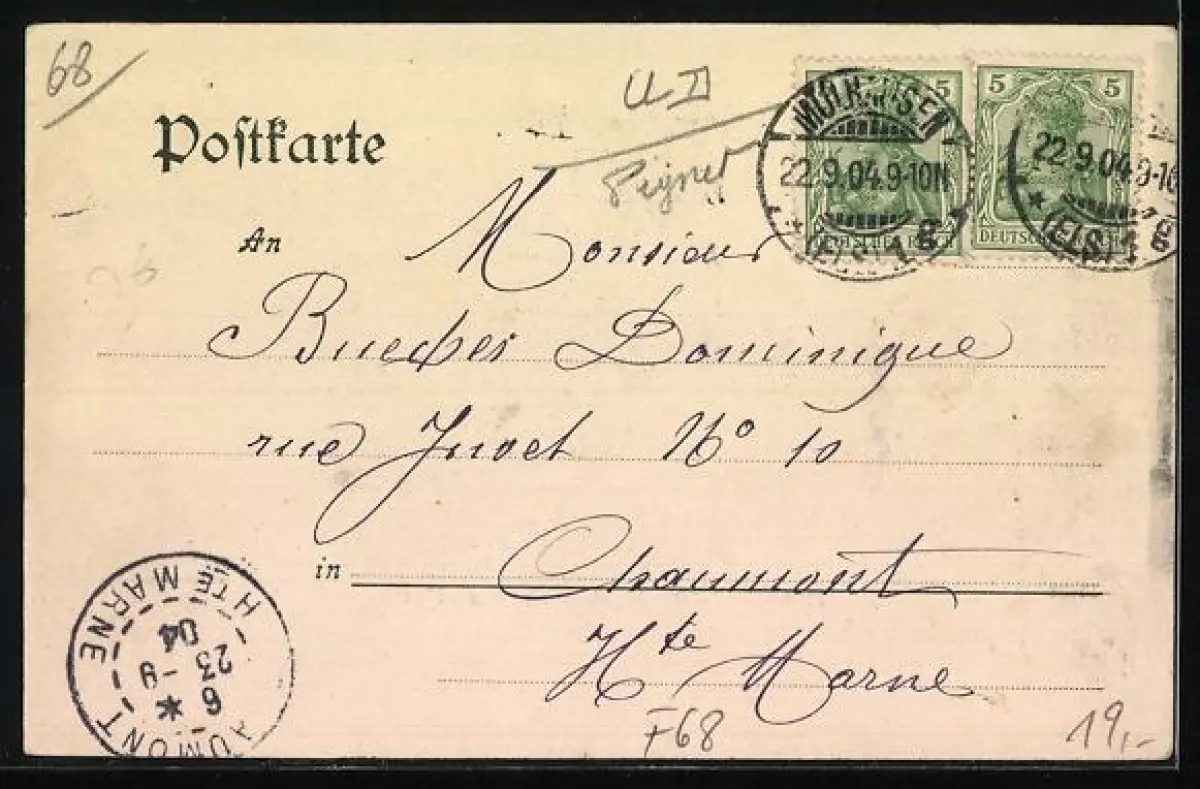 68
Postkarte
U II
MÜLHAUSEN
22.9.04.9-10N
(ELS.) 1 g
5
DEUTSCHES REICH
5
22.9.04.9-10
(ELS.) 1 g
DEUTSCHES REICH
An
Monsieur
Dominique
rue Juvet No 10
in
Chaumont
Hte Marne
CHAUMONT
HTE MARNE
6
23 -9
04
F68
19,-